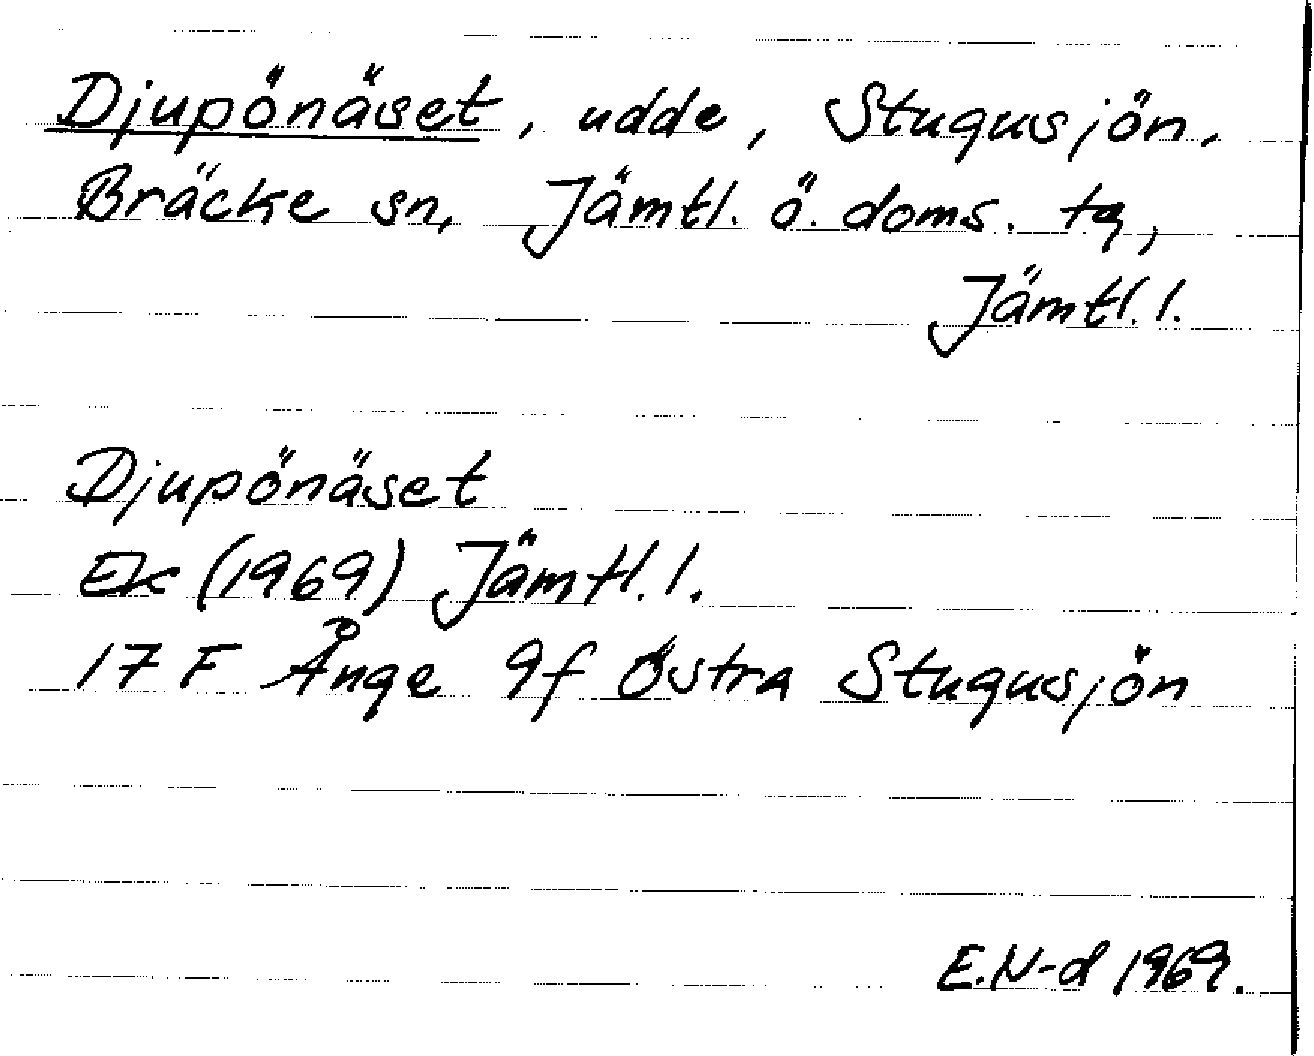 Djupönäset, udde, Stugusjön,
Bräcke sn, Jämtl. ö. doms. tg,
Jämtl. l.
Djupönäset
Ek (1969) Jämtl. l.
17 F Ånge 9f Östra Stugusjön
E.N-d 1969.